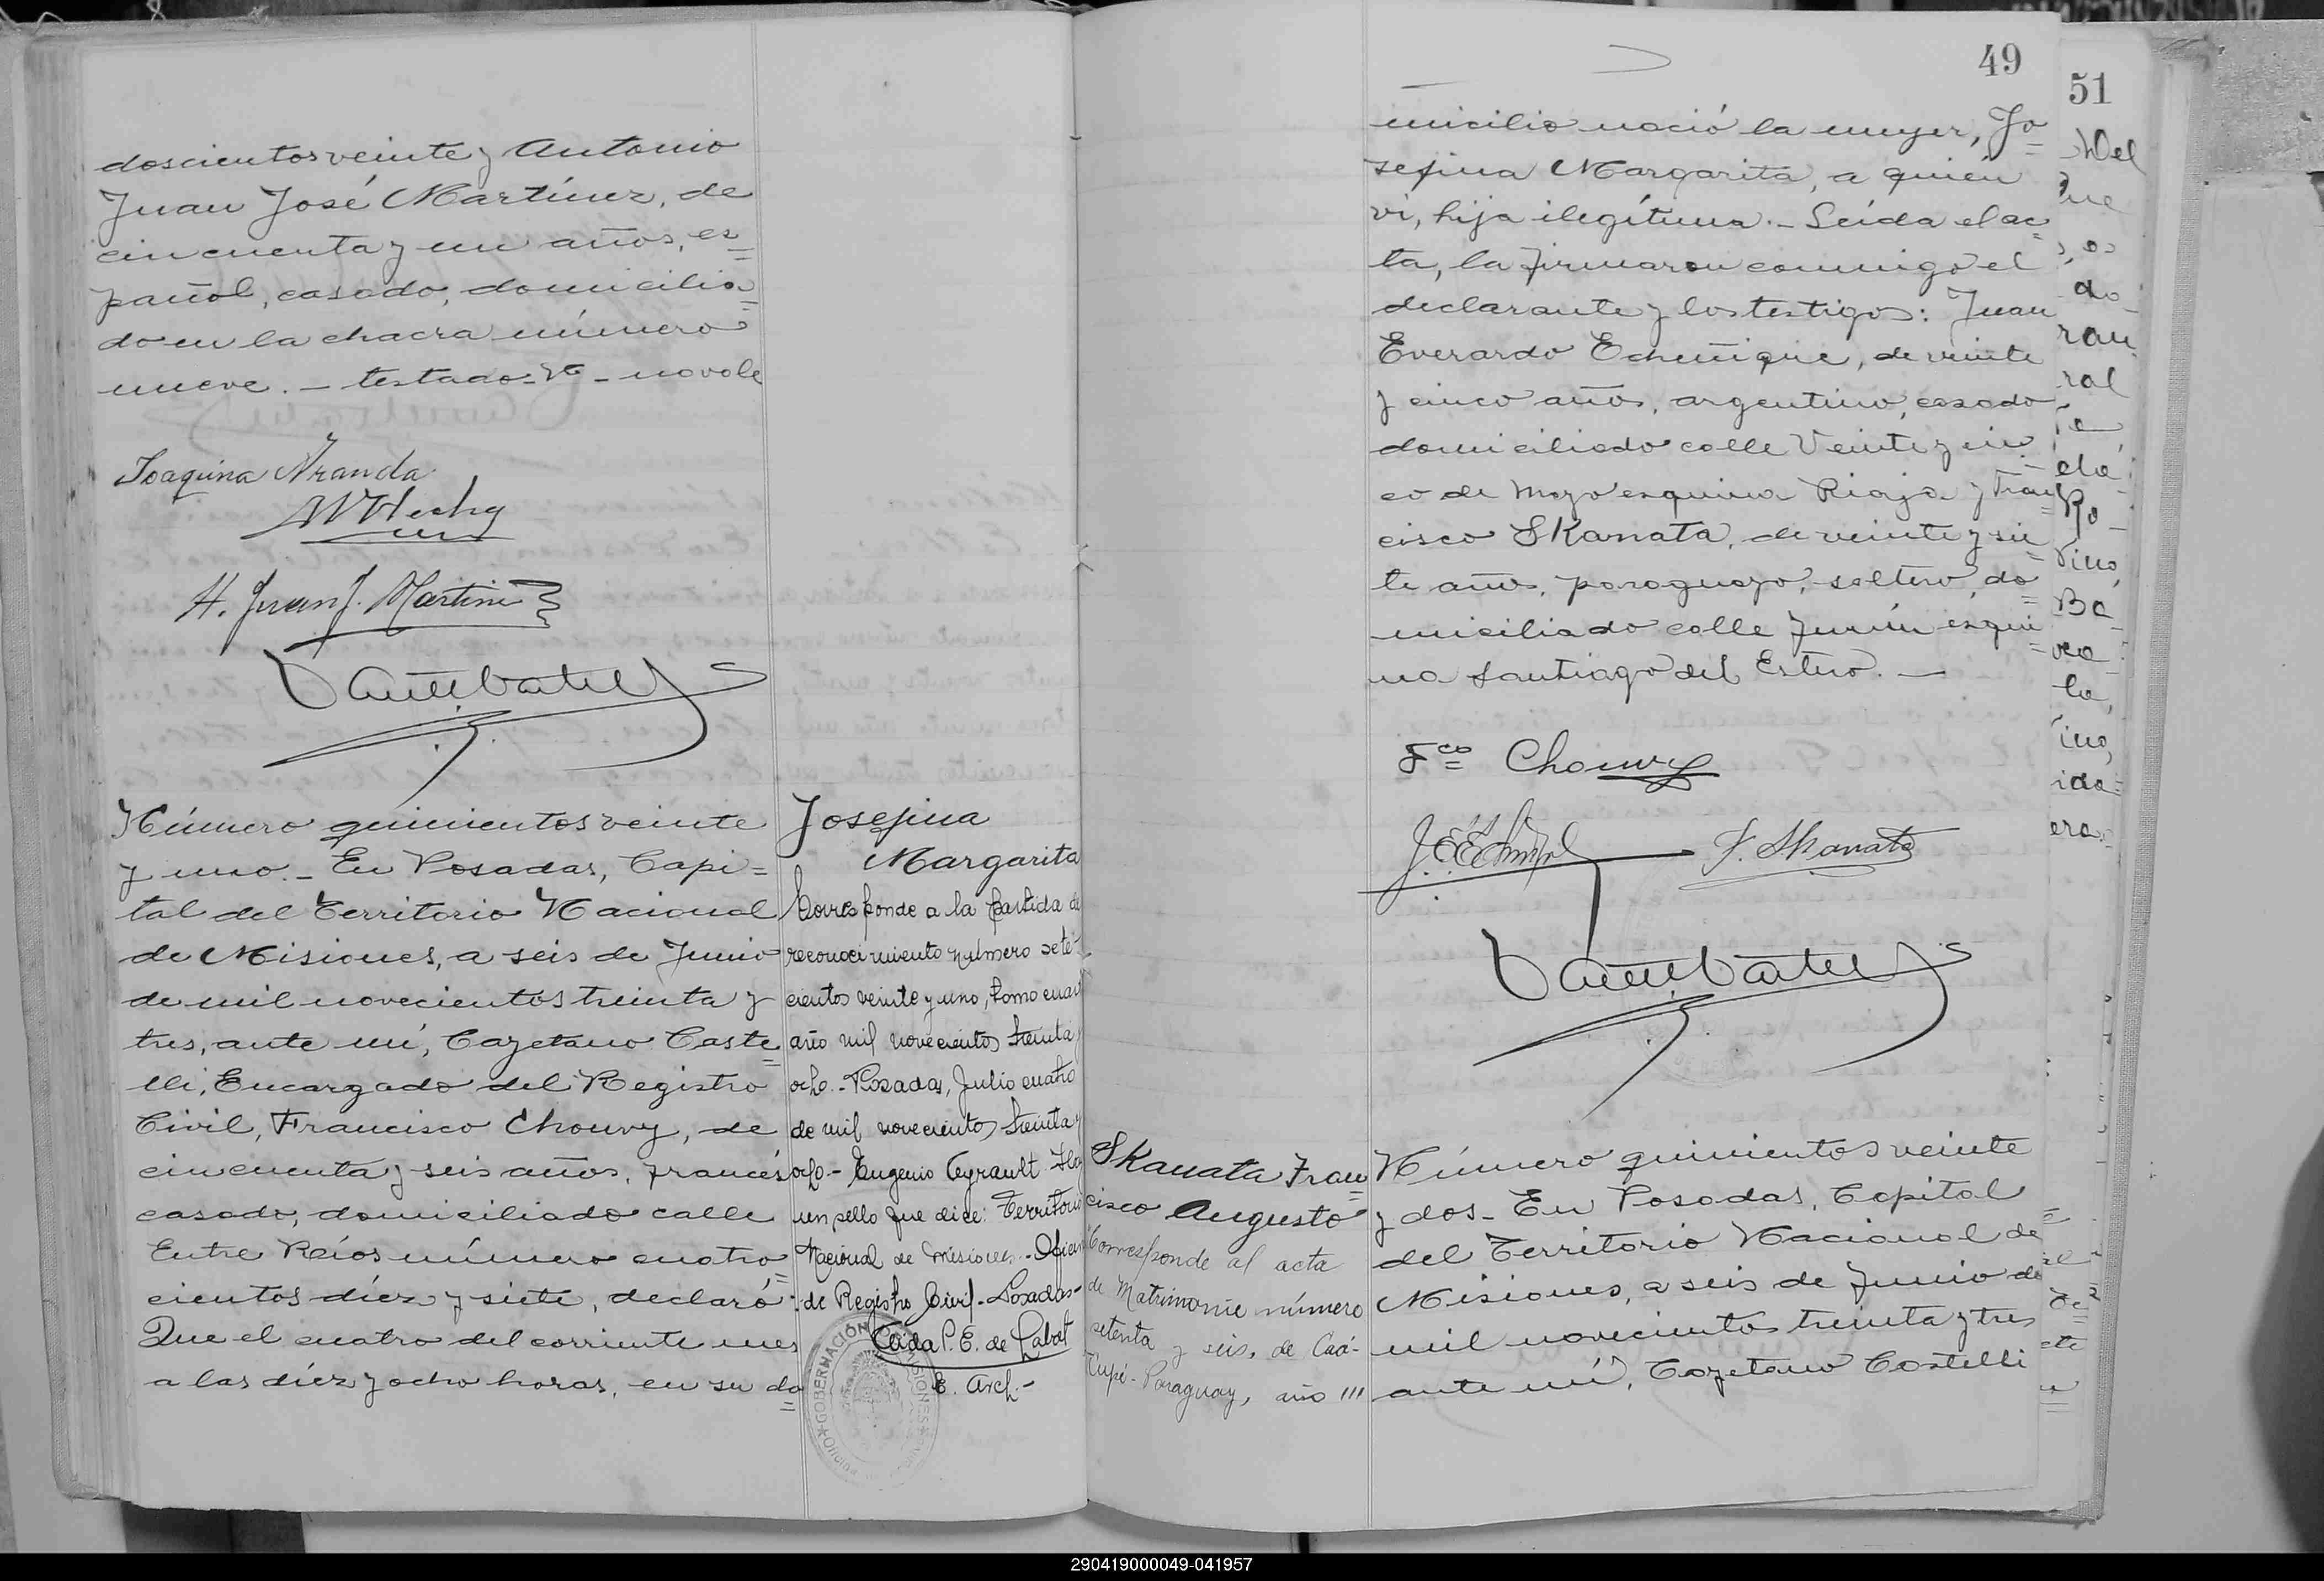 doscientos veinte y Antonio
Juan José Martínez, de
cincuenta y un años, es=
pañol, casado, domicilia=
do en la chacra número
nueve. - testado - no vale
Joaquina Aranda
H. Juan J. Martine
Número quinientos veinte
y uno. - En Posadas, Capi=
tal del Territorio Nacional
de Misiones, a seis de Junio
de mil novecientos treinta y
tres, ante mí, Cayetano Caste=
lli, Encargado del Registro
Civil, Francisco Chouvy, de
cincuenta y seis años, francés
casado, domiciliado calle
Entre Ríos número cuatro=
cientos diez y siete, declaró:
Que el cuatro del corriente mes
a las diez y ocho horas, en su do=
Josefina
Margarita
Corresponde a la partida de
reconocimiento número sete-
cientos veinte y uno, tomo
año mil novecientos treinta y
ocho. - Posadas, Julio cuatro
de mil novecientos treinta y
ocho - Eugenio Ayrault. Hay
un sello que dice: Territorio
Nacional de Misiones. - Oficina
de Registro Civil - Posadas -
P. E. de Labat
E. Arch. -
GOBERNACIÓN MISIONES
49
micilio nació la mujer, Jo=
sefina Margarita, a quién
vi, hija ilegítima. - Leída el ac=
ta, la firmaron conmigo el
declarante y los testigos: Juan
Everardo Echeñique, de veinte
y cinco años, argentino, casado
domiciliado calle Veinte y cin-
co de Mayo esquina Rioja y Fran=
cisco Skanata, de veinte y sie=
te años, paraguayo, soltero, do=
miciliado calle Junín esqui=
na Santiago del Estero. -
Fco Chouvy
F. Skanata
Skanata Fran=
cisco Augusto
Corresponde al acta
de Matrimonio número
setenta y seis, de Caá-
Cupé - Paraguay, año
Número quinientos veinte
y dos - En Posadas, Capital
del Territorio Nacional de
Misiones, a seis de Junio de
mil novecientos treinta y tres
ante mí, Cayetano Castelli
51
290419000049-041957